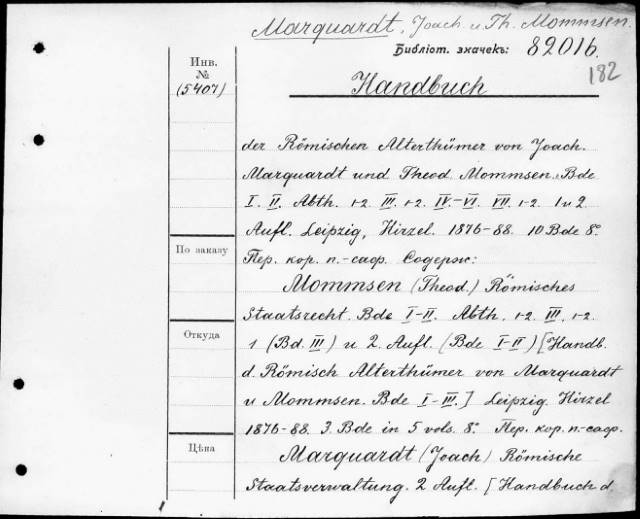 Marquardt, Joach. u. Th. Mommsen.
Библіот. значекъ: 8201б.
182
Инв.
№
(5407)
Handbuch
der Römischen Alterthümer von Joach.
Marquardt und Theod. Mommsen. Bde
I. II. Abth. 1-2. III. 1-2. IV-VI. VII. 1-2. 1 u 2
Aufl. Leipzig, Hirzel. 1876-88. 10 Bde 8°.
По заказу
Пер. кор. п.-саф. Содерж:
Mommsen (Theod.) Römisches
Staatsrecht. Bde I-II. Abth. 1-2. III. 1-2.
Откуда
1 (Bd. III) u 2. Aufl. (Bde I-II) [Handb.
d. Römisch Alterthümer von Marquardt
u Mommsen. Bde I-III.] Leipzig. Hirzel
1876-88. 3. Bde in 5 vols. 8°. Пер. кор. п.-саф.
Цѣна
Marquardt (Joach) Römische
Staatsverwaltung. 2 Aufl. [Handbuch d.